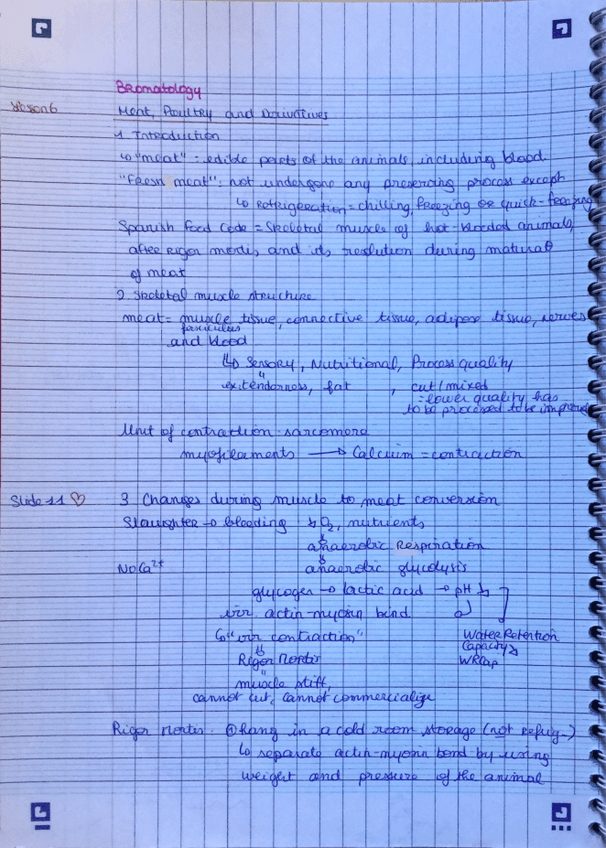 Bromatology
lesson 6 Meat, Poultry and Derivatives
1. Introduction
↳ "meat": edible parts of the animals, including blood.
"Fresh meat": not undergone any preserving process except
↳ Refrigeration = chilling, freezing or quick-freezing
Spanish Food Code = Skeletal muscle of hot-blooded animals,
after Rigor mortis, and its resolution during maturat
of meat
2. Skeletal muscle structure
meat = muscle tissue, connective tissue, adipose tissue, nerves
fasciculus
and blood
↳ Sensory, Nutritional, Process quality
ex: tenderness, fat , cut/mixed
= lower quality has
to be processed to be improved
Unit of contraction: sarcomere
myofilaments → Calcium = contraction
Slide 11 ♡ 3 Changes during muscle to meat conversion
Slaughter → bleeding ↓ O2, nutrients
anaerobic Respiration
No Ca2+ anaerobic glycolysis
glycogen → lactic acid → pH ↓
irr. actin-myosin bind
↳ "irr contraction" Water Retention
Capacity ↓
Rigor Mortis WRCap
muscle stiff,
cannot cut, cannot commercialize
Rigor Mortis: ① hang in a cold room storage (not refrig.)
↳ separate actin-myosin bond by using
weight and pressure of the animal